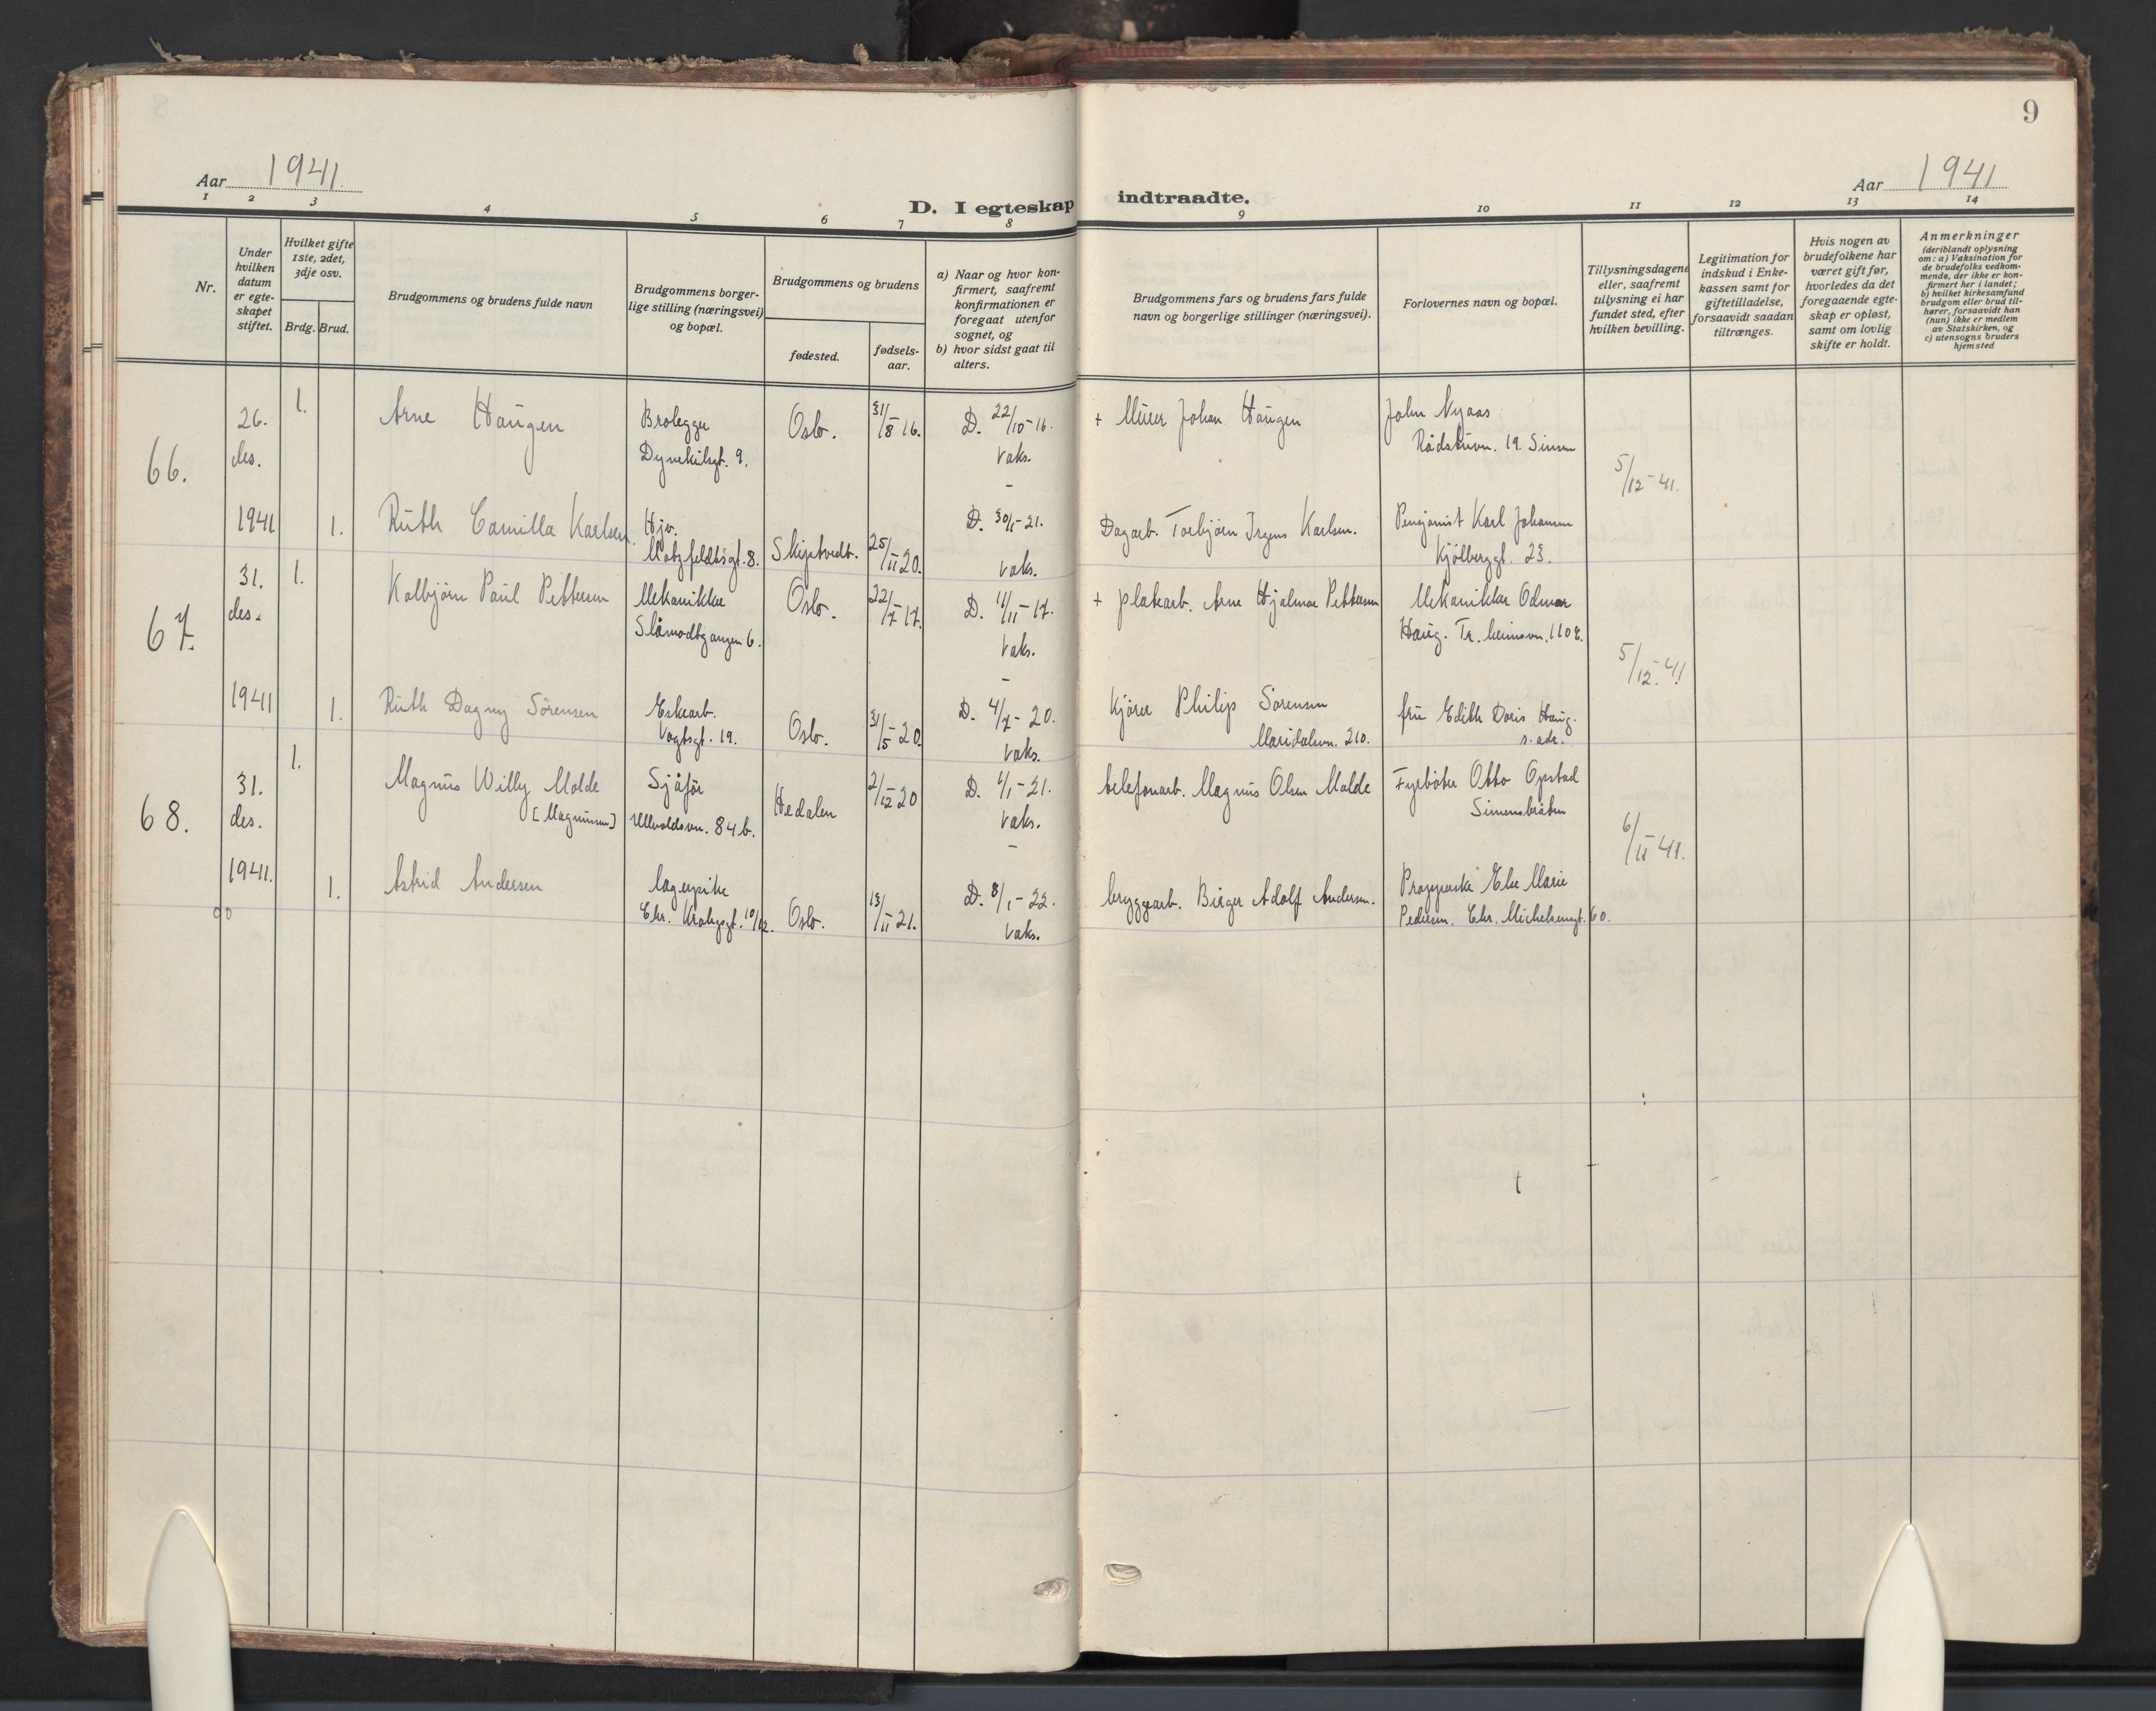 9
Aar 1941.
Aar 1941
D. I egteskap indtraadte.
1 2 3 4 5 6 7 8 9 10 11 12 13 14
Nr.
Under
hvilken
datum
er egte-
skapet
stiftet.
Hvilket gifte
1ste, 2det,
3dje osv.
Brdg. Brud.
Brudgommens og brudens fulde navn
Brudgommens borger-
lige stilling (næringsvei)
og bopæl.
Brudgommens og brudens
fødested.
fødsels-
aar.
a) Naar og hvor kon-
firmert, saafremt
konfirmationen er
foregaat utenfor
sognet, og
b) hvor sidst gaat til
alters.
Brudgommens fars og brudens fars fulde
navn og borgerlige stillinger (næringsvei).
Forlovernes navn og bopæl.
Tillysningsdagene
eller, saafremt
tillysning ei har
fundet sted, efter
hvilken bevilling.
Legitimation for
indskud i Enke-
kassen samt for
giftetilladelse,
forsaavidt saadan
tiltrænges.
Hvis nogen av
brudefolkene har
været gift før,
hvorledes da det
foregaaende egte-
skap er opløst,
samt om lovlig
skifte er holdt.
Anmerkninger
(deriblandt oplysning
om: a) Vaksination for
de brudefolks vedkom-
mende, der ikke er kon-
firmert her i landet;
b) hvilket kirkesamfund
brudgom eller brud til-
hører, forsaavidt han
(hun) ikke er medlem
av Statskirken, og
c) utensogns bruders
hjemsted
66.
26.
des.
1941
1.
Arne Haugen
Brolegger
Dynekilsgt. 9.
Oslo.
31/8-16.
D. 22/10-16.
vaks.
-
+ Murer Johan Haugen
John Nyaas
Rådstuvn. 19. Sinsen
5/12-41.
1.
Ruth Camilla Karlsen.
Hjv.
Motzfeldtsgt. 8.
Skiptvedt.
25/11 20.
D. 30/1-21.
vaks.
Dagarb. Torbjørn Irgens Karlsen.
Pensjonist Karl Johansen
Kjølberggt. 23.
67.
31.
des.
1941
1.
Kolbjørn Paul Pettersen
Mekaniker
Slåmodtgangen 6.
Oslo.
22/7-17.
D. 4/11-17.
vaks.
-
+ platearb. Arne Hjalmar Pettersen
Mekaniker Odmar
Haug. Tr. heimsvn. 110 E.
5/12-41
1.
Ruth Dagny Sörensen
Eskearb.
Vogtsgt. 19.
Oslo.
31/5-20.
D. 4/7-20.
vaks.
Kjører Philip Sörensen
Maridalsvn. 210.
fru Edith Doris Haug.
s. adr.
68.
31.
des.
1941.
1.
Magnus Willy Molde
[Magnussen]
Sjåfør
Ullevoldsvn. 84 b.
Hedalen
2/12 20
D. 6/1-21.
vaks.
-
telefonarb. Magnus Olsen Molde
Fyrbøter Otto Opstad
Simensbråten
6/11 41.
1.
Astrid Andersen
lagerpike
Chr. Kroghsgt. 10/12.
Oslo.
13/11 21.
D. 8/1-22.
vaks.
bryggearb. Birger Adolf Andersen.
Else Marie
Pedersen. Chr. Michelsensgt. 60.